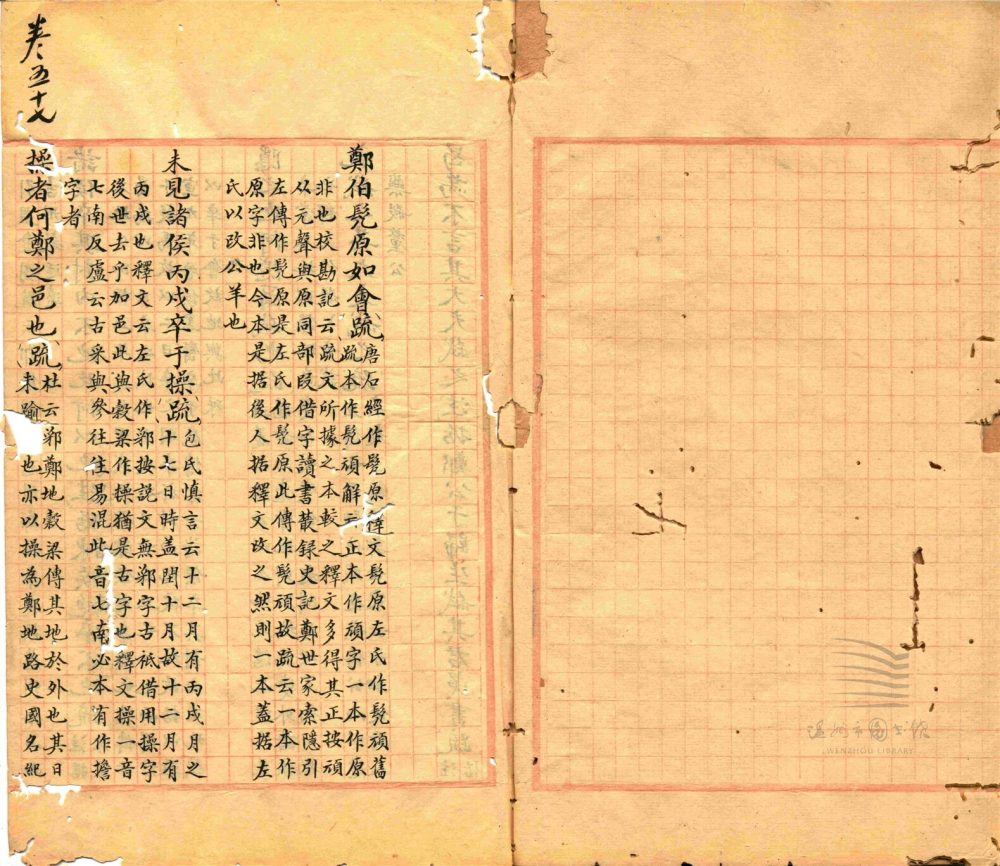 卷五十七
鄭伯髡原如會疏
唐石經作髡原釋文髡原左氏作髡頑舊
疏本作髡頑解云正本作頑字一本作原
非也校勘記云疏文所據之本較之釋文多得其正按頑
以元聲與原同部叚借字讀書叢録史記鄭世家索隱引
左傳作髡原是左氏作髡原此傳作髡頑故疏云一本作
原字非也今本是据後人据釋文改之然則一本蓋据左
氏以改公羊也
未見諸侯丙戌卒于操疏
包氏慎言云十二月有丙戌月之
十七日時蓋閏十月故十二月有
丙戌也釋文云左氏作鄵按說文無鄵字古祗借用操字
後世去乎加邑此與穀梁作操猶是古字也釋文操一音
七南反盧云古采與參往往易混此音七南必本有作擔
字者
操者何鄭之邑也疏
杜云鄵鄭地穀梁傳其地於外也其日
未踰也亦以操為鄭地路史國名紀
温州市图书馆
WENZHOU LIBRARY